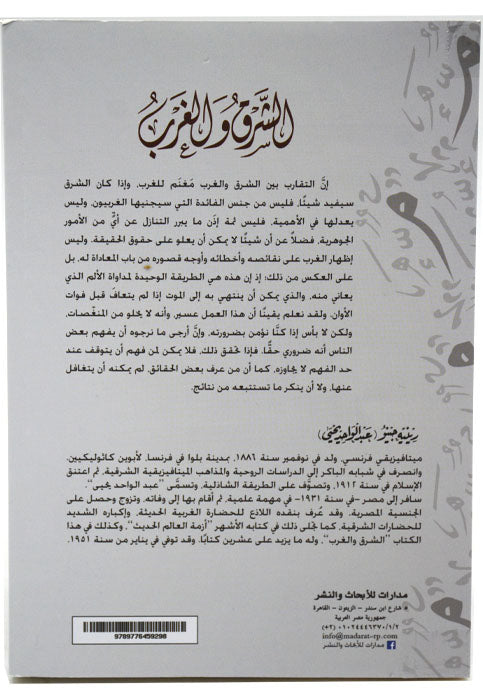 الشَّرقُ وَالغَربُ
إنَّ التقارب بين الشرق والغرب مَغنَم للغرب، وإذا كان الشرق
سيفيد شيئًا، فليس من جنس الفائدة التي سيجنيها الغربيون، وليس
يعدلها في الأهمية، فليس ثمة إذن ما يبرر التنازل عن أيٍّ من الأمور
الجوهرية، فضلاً عن أن شيئًا لا يمكن أن يعلو على حقوق الحقيقة. وليس
إظهار الغرب على نقائصه وأخطائه وأوجه قصوره من باب المعاداة له، بل
على العكس من ذلك؛ إذ إن هذه هي الطريقة الوحيدة لمداواة الألم الذي
يعاني منه، والذي يمكن أن ينتهي به إلى الموت إذا لم يتعافَ قبل فوات
الأوان. ولقد نعلم يقينًا أن هذا العمل عسير، وأنه لا يخلو من المنغّصات،
ولكن لا بأس إذا كنَّا نؤمن بضرورته، وإنَّ أرجى ما نرجوه أن يفهم بعض
الناس أنه ضروري حقًّا. فإذا تحقق ذلك، فلا يمكن لمن فهم أن يتوقف عند
حد الفهم لا يجاوزه، كما أن من عرف بعض الحقائق، لم يمكنه أن يتغافل
عنها، ولا أن ينكر ما تستتبعه من نتائج.
رينيه جينو (عبد الواحد يحيى)
ميتافيزيقي فرنسي. ولد في نوفمبر سنة ١٨٨٦، بمدينة بلوا في فرنسا، لأبوين كاثوليكيين،
وانصرف في شبابه الباكر إلى الدراسات الروحية والمذاهب الميتافيزيقية الشرقية، ثم اعتنق
الإسلام في سنة ١٩١٢، وتصوَّف على الطريقة الشاذلية، وتسمَّى "عبد الواحد يحيى".
سافر إلى مصر -في سنة ١٩٣١- في مهمة علمية، ثم أقام بها إلى وفاته، وتزوج وحصل على
الجنسية المصرية. وقد عُرف بنقده اللاذع للحضارة الغربية الحديثة، وإكباره الشديد
للحضارات الشرقية، كما تجلى ذلك في كتابه الأشهر "أزمة العالم الحديث"، وكذلك في هذا
الكتاب "الشرق والغرب". وله ما يزيد على عشرين كتابًا. وقد توفي في يناير من سنة ١٩٥١.
مدارات للأبحاث والنشر
٥ شارع ابن سندر - الزيتون - القاهرة
جمهورية مصر العربية
(+٢) ٠١٠٢٤٤٤٦٣٧٠/١/٢
info@madarat-rp.com
مدارات للأبحاث والنشر
9789776459298